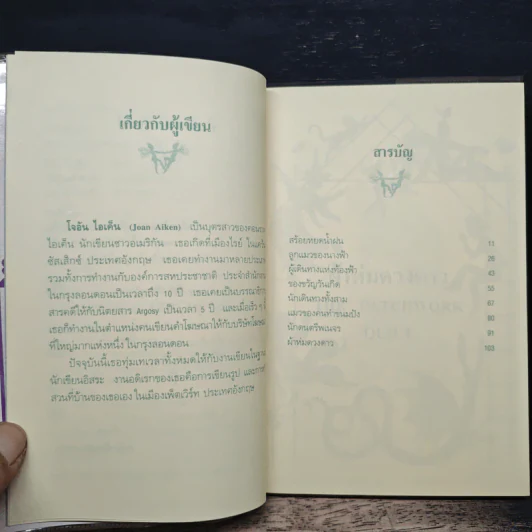 เกี่ยวกับผู้เขียน
โจอัน ไอเค็น (Joan Aiken) เป็นบุตรสาวของคอนราด
ไอเค็น นักเขียนชาวอเมริกัน เธอเกิดที่เมืองไรย์ ในแคว้น
ซัสเส็กซ์ ประเทศอังกฤษ เธอเคยทำงานมาหลายประเภท
รวมทั้งการทำงานกับองค์การสหประชาชาติ ประจำสำนักงาน
ในกรุงลอนดอนเป็นเวลาถึง 10 ปี เธอเคยเป็นบรรณาธิการ
สารคดีให้กับนิตยสาร Argosy เป็นเวลา 5 ปี และเมื่อเร็วๆ นี้
เธอก็ทำงานในตำแหน่งคนเขียนคำโฆษณาให้กับบริษัทโฆษณา
ที่ใหญ่มากแห่งหนึ่ง ในกรุงลอนดอน
ปัจจุบันนี้เธอทุ่มเทเวลาทั้งหมดให้กับงานเขียนในฐานะ
นักเขียนอิสระ งานอดิเรกของเธอคือการเขียนรูป และการทำ
สวนที่บ้านของเธอเอง ในเมืองเพ็ตเวิร์ท ประเทศอังกฤษ
สารบัญ
สร้อยหยดน้ำฝน 11
ลูกแมวของนางฟ้า 26
ผู้เดินทางแห่งท้องฟ้า 43
ของขวัญวันเกิด 55
นักเดินทางทั้งสาม 67
แมวของคนทำขนมปัง 80
นักดนตรีพเนจร 91
ผ้าห่มดวงดาว 103